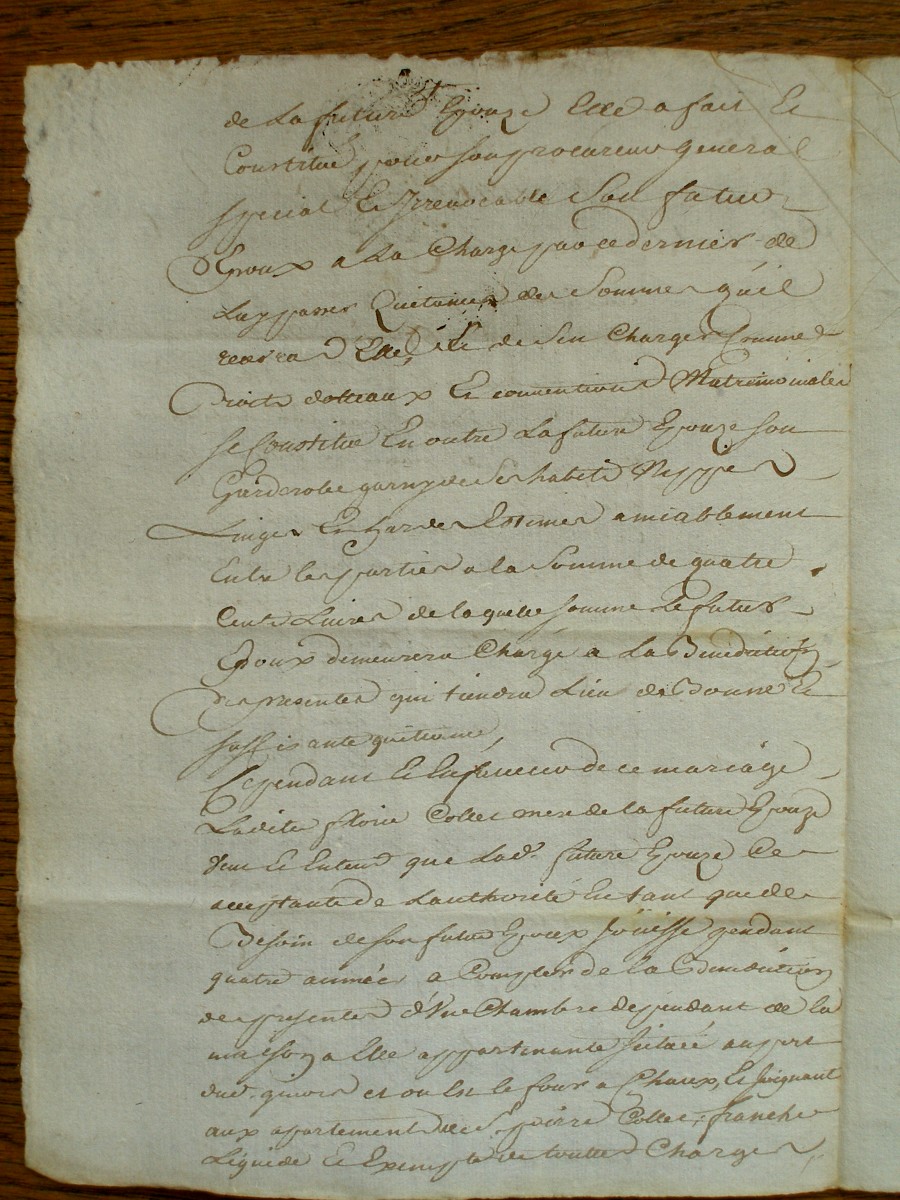 de La future Epouze Elle a fait Et
Constitué pour son procureur general
special Et Irrevocable Son futur
Epoux a La Charge par ce dernier de
Luy passer Quitance des Sommes quil
recevra d'Elle, Et de s'en Charger Comme
Droits dotteaux Et conventions Matrimoniales
se Constitue En outre La future Epouze son
Garderobe garny de ses habits Nippes
Linges Et hardes Estimes amiablement
Entre les parties a la Somme de quatre
Cents Livres de laquelle somme Le futur
Epoux demeurera Chargé a La Benediction
des presentes qui tiendra Lieu de Bonne Et
suffisante quitance,
Cependant Et En faveur de ce mariage
Ladite Collet mere de la future Epouze
veut Et Entend que Lad. future Epouze Ce
acceptante de Lauthorité En tant que de
Besoin de son futur Epoux Joüisse pendant
quatre années a Compter de la Benediction
des presentes d'Une Chambre dependant de la
maison a Elle appartenante scituée au port
dud. et ou Est le four a Chaux, Et Joignant
aux appartements de S. pierre Collet, franche
Liquide Et Exempte de touttes Charges